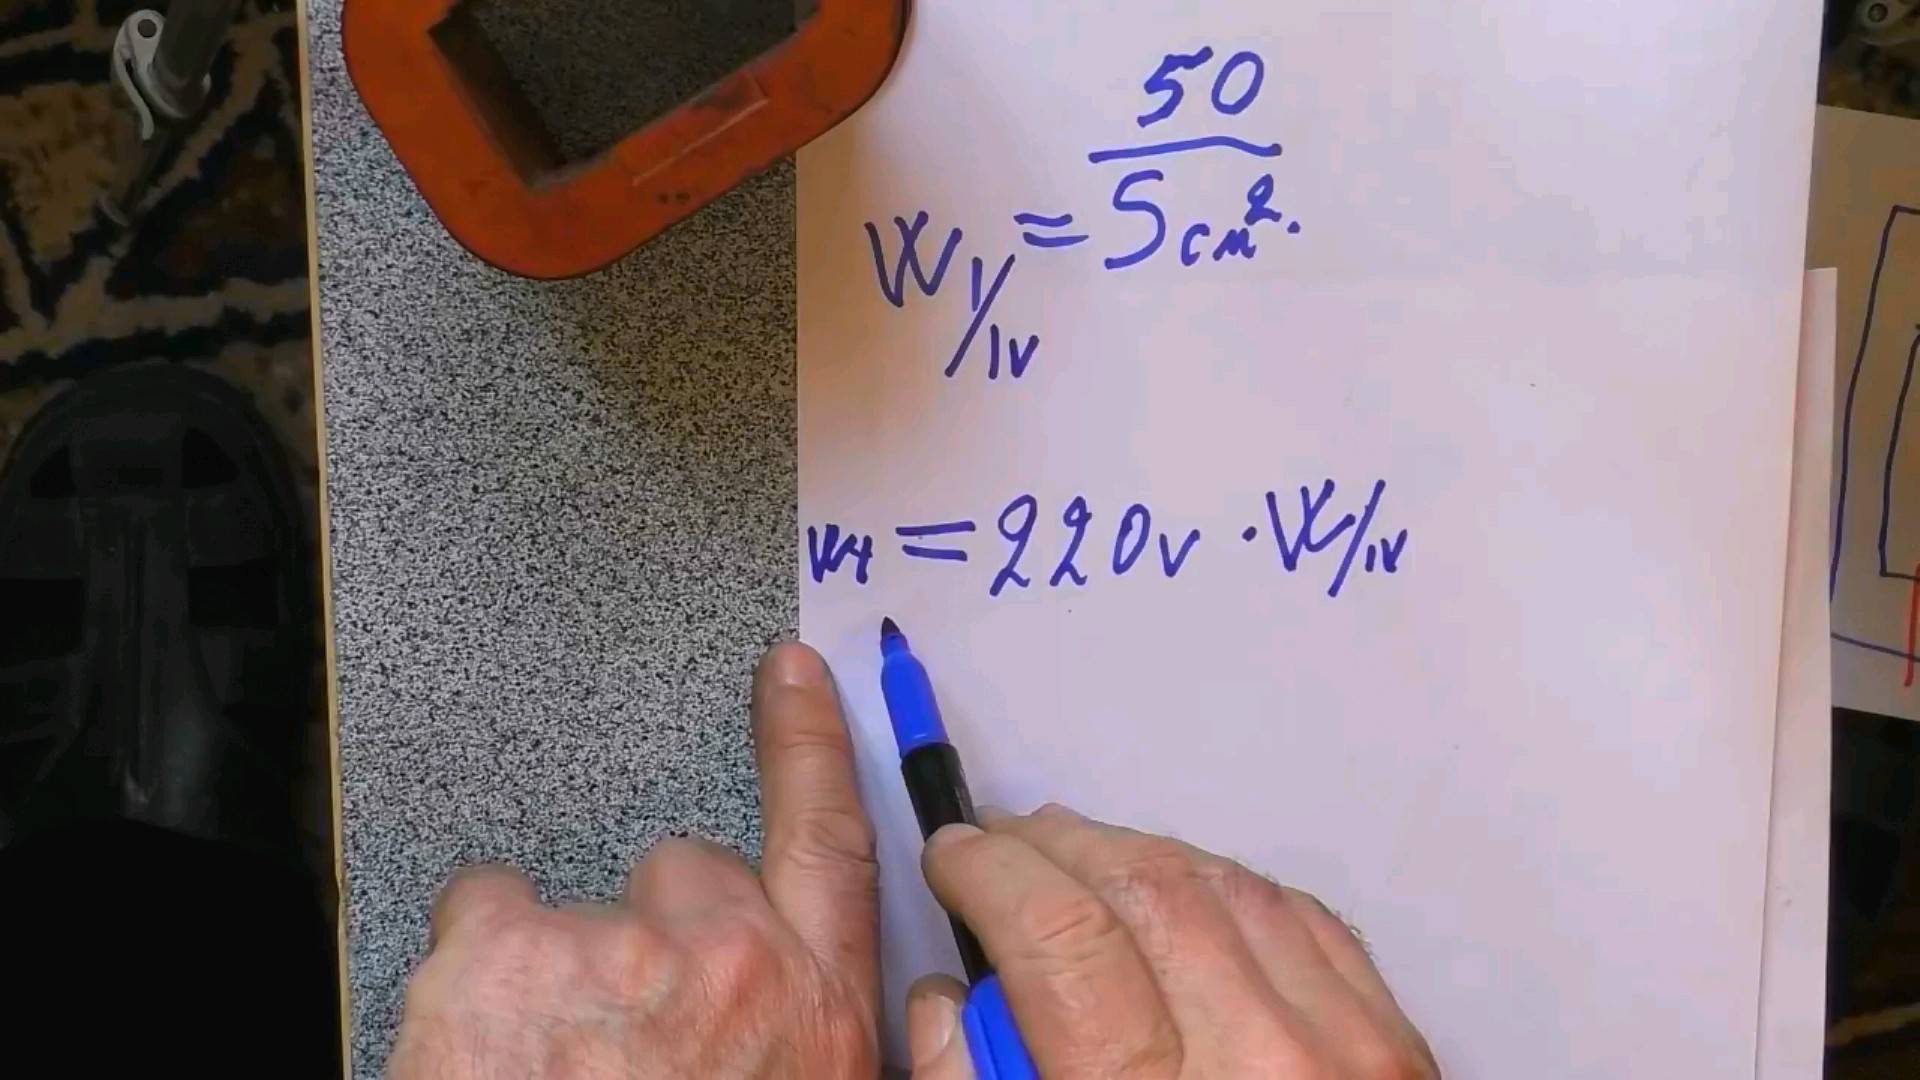 W 1/1v = 50/Scм².
W1 = 220v · W/1v